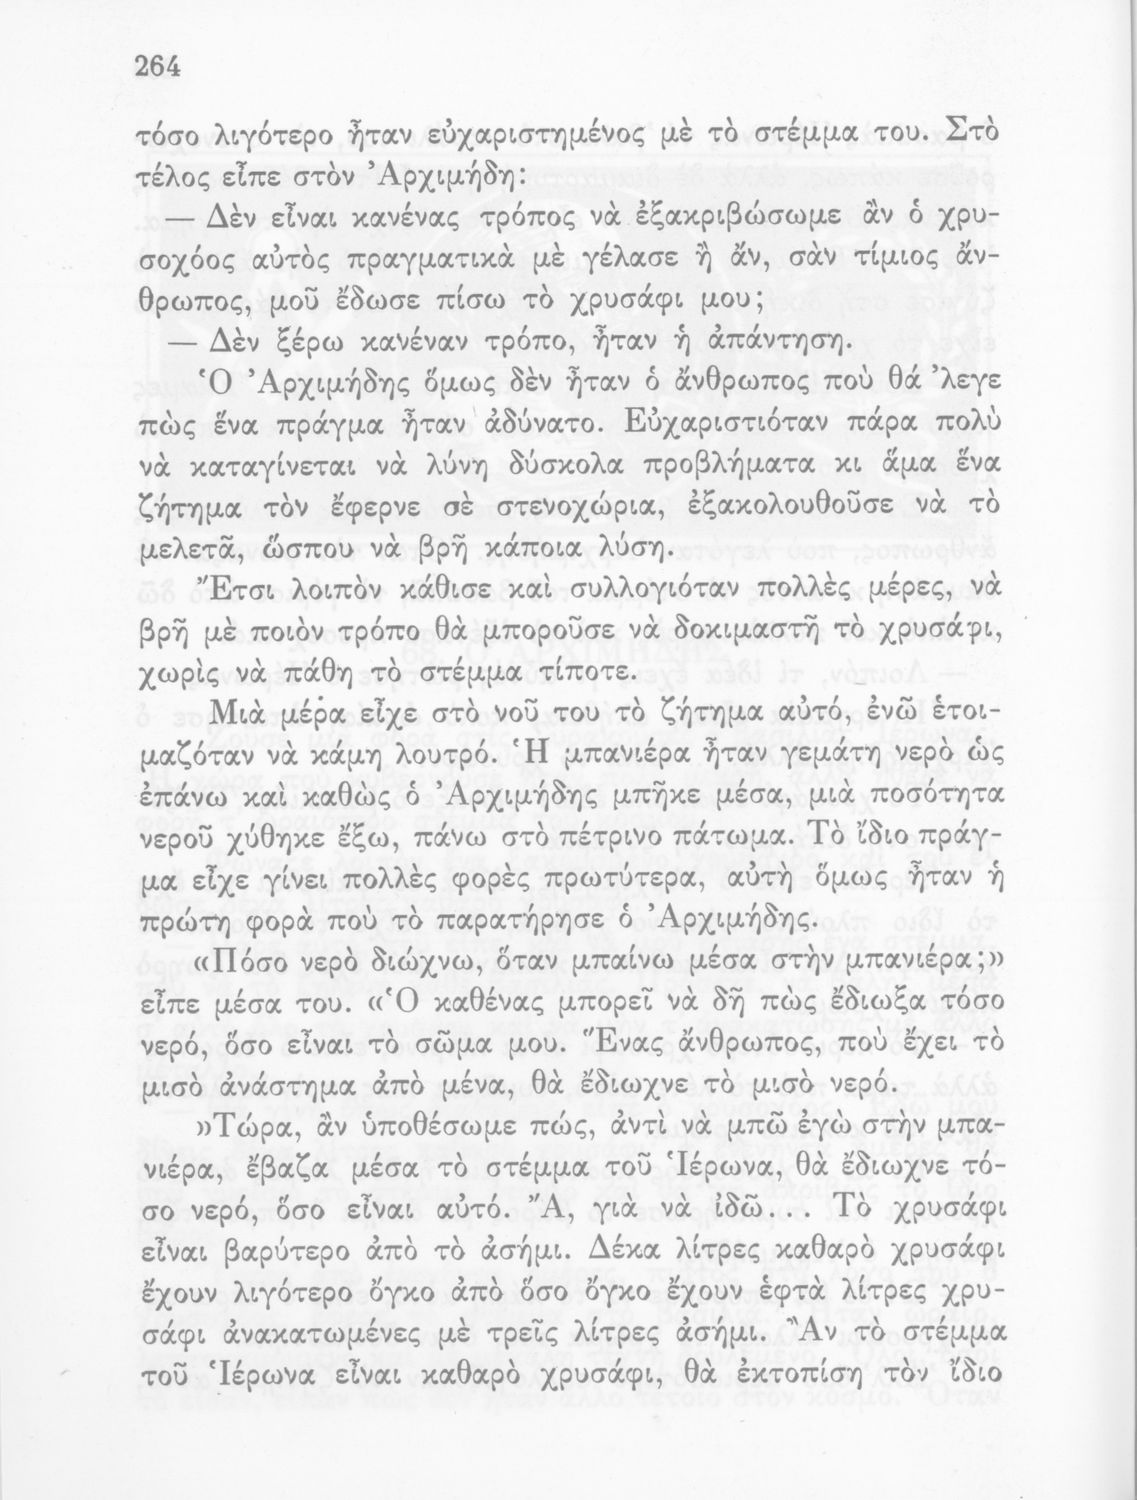 264
τόσο λιγότερο ἦταν εὐχαριστημένος μὲ τὸ στέμμα του. Στὸ
τέλος εἶπε στὸν Ἀρχιμήδη:
— Δὲν εἶναι κανένας τρόπος νὰ ἐξακριβώσωμε ἂν ὁ χρυ-
σοχόος αὐτὸς πραγματικὰ μὲ γέλασε ἢ ἄν, σὰν τίμιος ἄν-
θρωπος, μοῦ ἔδωσε πίσω τὸ χρυσάφι μου;
— Δὲν ξέρω κανέναν τρόπο, ἦταν ἡ ἀπάντηση.
Ὁ Ἀρχιμήδης ὅμως δὲν ἦταν ὁ ἄνθρωπος ποὺ θά ᾽λεγε
πὼς ἕνα πράγμα ἦταν ἀδύνατο. Εὐχαριστιόταν πάρα πολὺ
νὰ καταγίνεται νὰ λύνη δύσκολα προβλήματα κι ἅμα ἕνα
ζήτημα τὸν ἔφερνε σὲ στενοχώρια, ἐξακολουθοῦσε νὰ τὸ
μελετᾶ, ὥσπου νὰ βρῆ κάποια λύση.
Ἔτσι λοιπὸν κάθισε καὶ συλλογιόταν πολλὲς μέρες, νὰ
βρῆ μὲ ποιὸν τρόπο θὰ μποροῦσε νὰ δοκιμαστῆ τὸ χρυσάφι,
χωρὶς νὰ πάθη τὸ στέμμα τίποτε.
Μιὰ μέρα εἶχε στὸ νοῦ του τὸ ζήτημα αὐτό, ἐνῶ ἑτοι-
μαζόταν νὰ κάμη λουτρό. Ἡ μπανιέρα ἦταν γεμάτη νερὸ ὡς
ἐπάνω καὶ καθὼς ὁ Ἀρχιμήδης μπῆκε μέσα, μιὰ ποσότητα
νεροῦ χύθηκε ἔξω, πάνω στὸ πέτρινο πάτωμα. Τὸ ἴδιο πράγ-
μα εἶχε γίνει πολλὲς φορὲς πρωτύτερα, αὐτὴ ὅμως ἦταν ἡ
πρώτη φορὰ ποὺ τὸ παρατήρησε ὁ Ἀρχιμήδης.
«Πόσο νερὸ διώχνω, ὅταν μπαίνω μέσα στὴν μπανιέρα;»
εἶπε μέσα του. «Ὁ καθένας μπορεῖ νὰ δῆ πὼς ἔδιωξα τόσο
νερό, ὅσο εἶναι τὸ σῶμα μου. Ἕνας ἄνθρωπος, ποὺ ἔχει τὸ
μισὸ ἀνάστημα ἀπὸ μένα, θὰ ἔδιωχνε τὸ μισὸ νερό.
»Τώρα, ἂν ὑποθέσωμε πώς, ἀντὶ νὰ μπῶ ἐγὼ στὴν μπα-
νιέρα, ἔβαζα μέσα τὸ στέμμα τοῦ Ἱέρωνα, θὰ ἔδιωχνε τό-
σο νερό, ὅσο εἶναι αὐτό. Ἄ, γιὰ νὰ ἰδῶ... Τὸ χρυσάφι
εἶναι βαρύτερο ἀπὸ τὸ ἀσήμι. Δέκα λίτρες καθαρὸ χρυσάφι
ἔχουν λιγότερο ὄγκο ἀπὸ ὅσο ὄγκο ἔχουν ἑφτὰ λίτρες χρυ-
σάφι ἀνακατωμένες μὲ τρεῖς λίτρες ἀσήμι. Ἂν τὸ στέμμα
τοῦ Ἱέρωνα εἶναι καθαρὸ χρυσάφι, θὰ ἐκτοπίση τὸν ἴδιο